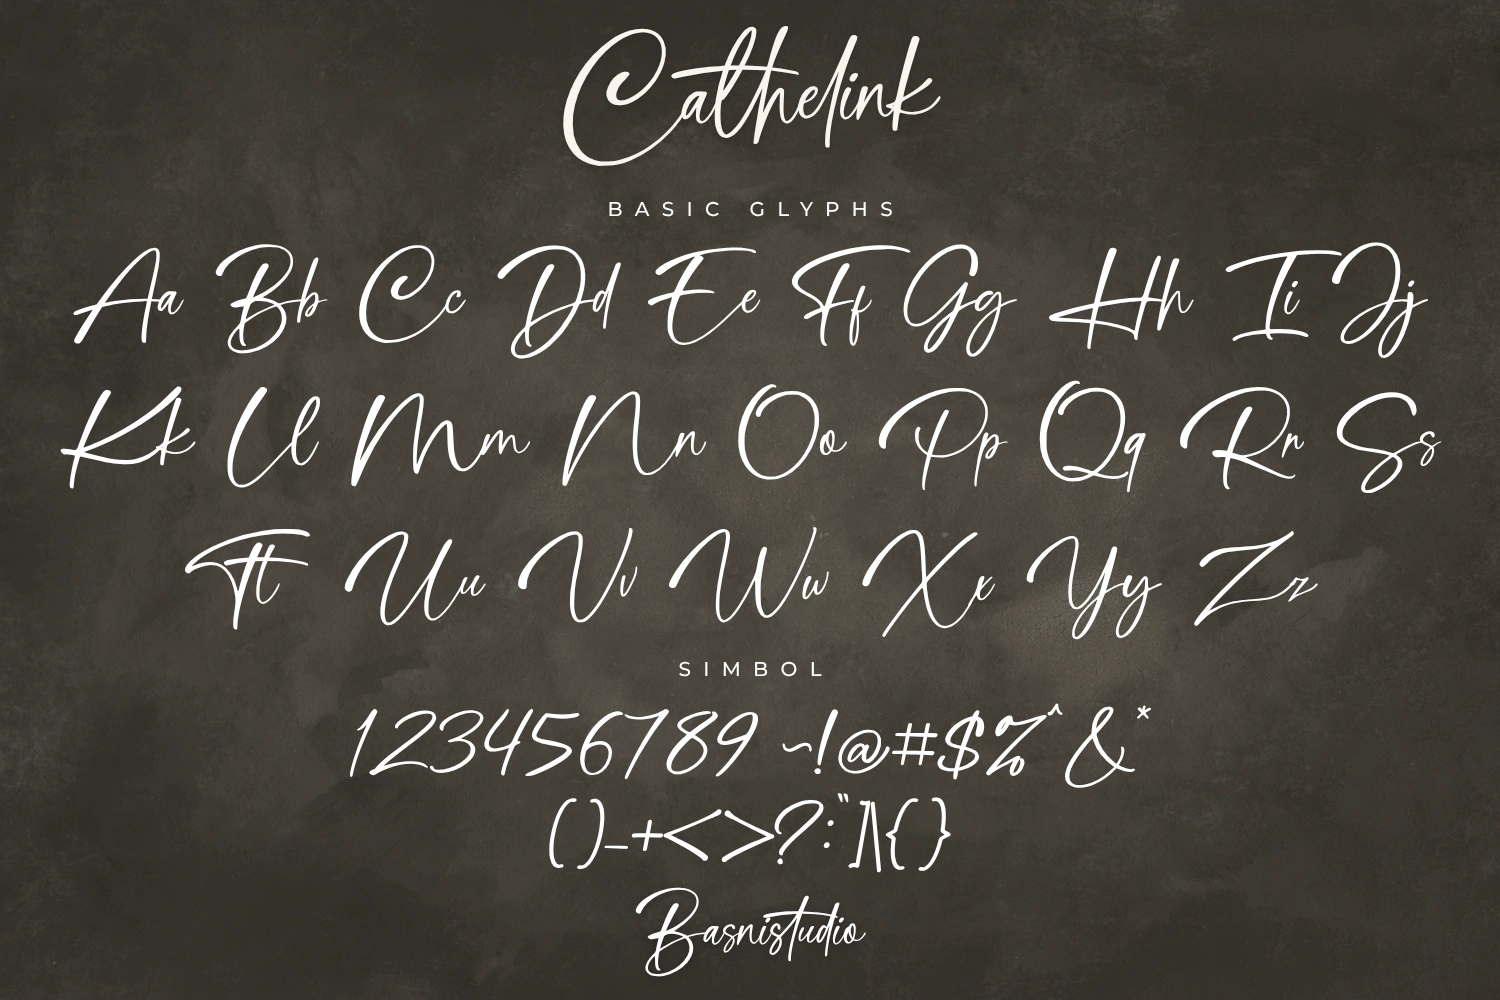 Cathelink
BASIC GLYPHS
Aa Bb Cc Dd Ee Ff Gg Hh Ii Jj
Kk Ll Mm Nn Oo Pp Qq Rr Ss
Tt Uu Vv Ww Xx Yy Zz
SIMBOL
123456789 ~!@#$%^&*
()_+<>?:"]|\{}
Basnistudio